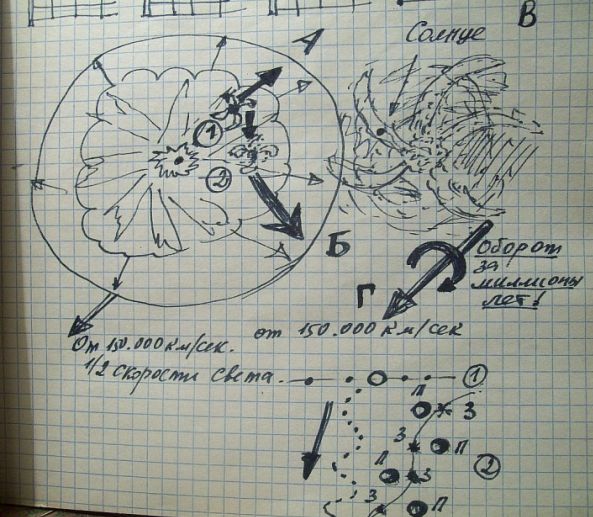 В
Солнце
А
1
2
Б
Оборот
за
миллионы
лет!
Г
От 150.000 км/сек.
1/2 скорости света.
от 150.000 км/сек
1
П
З
З
П
2
П
З
З
П